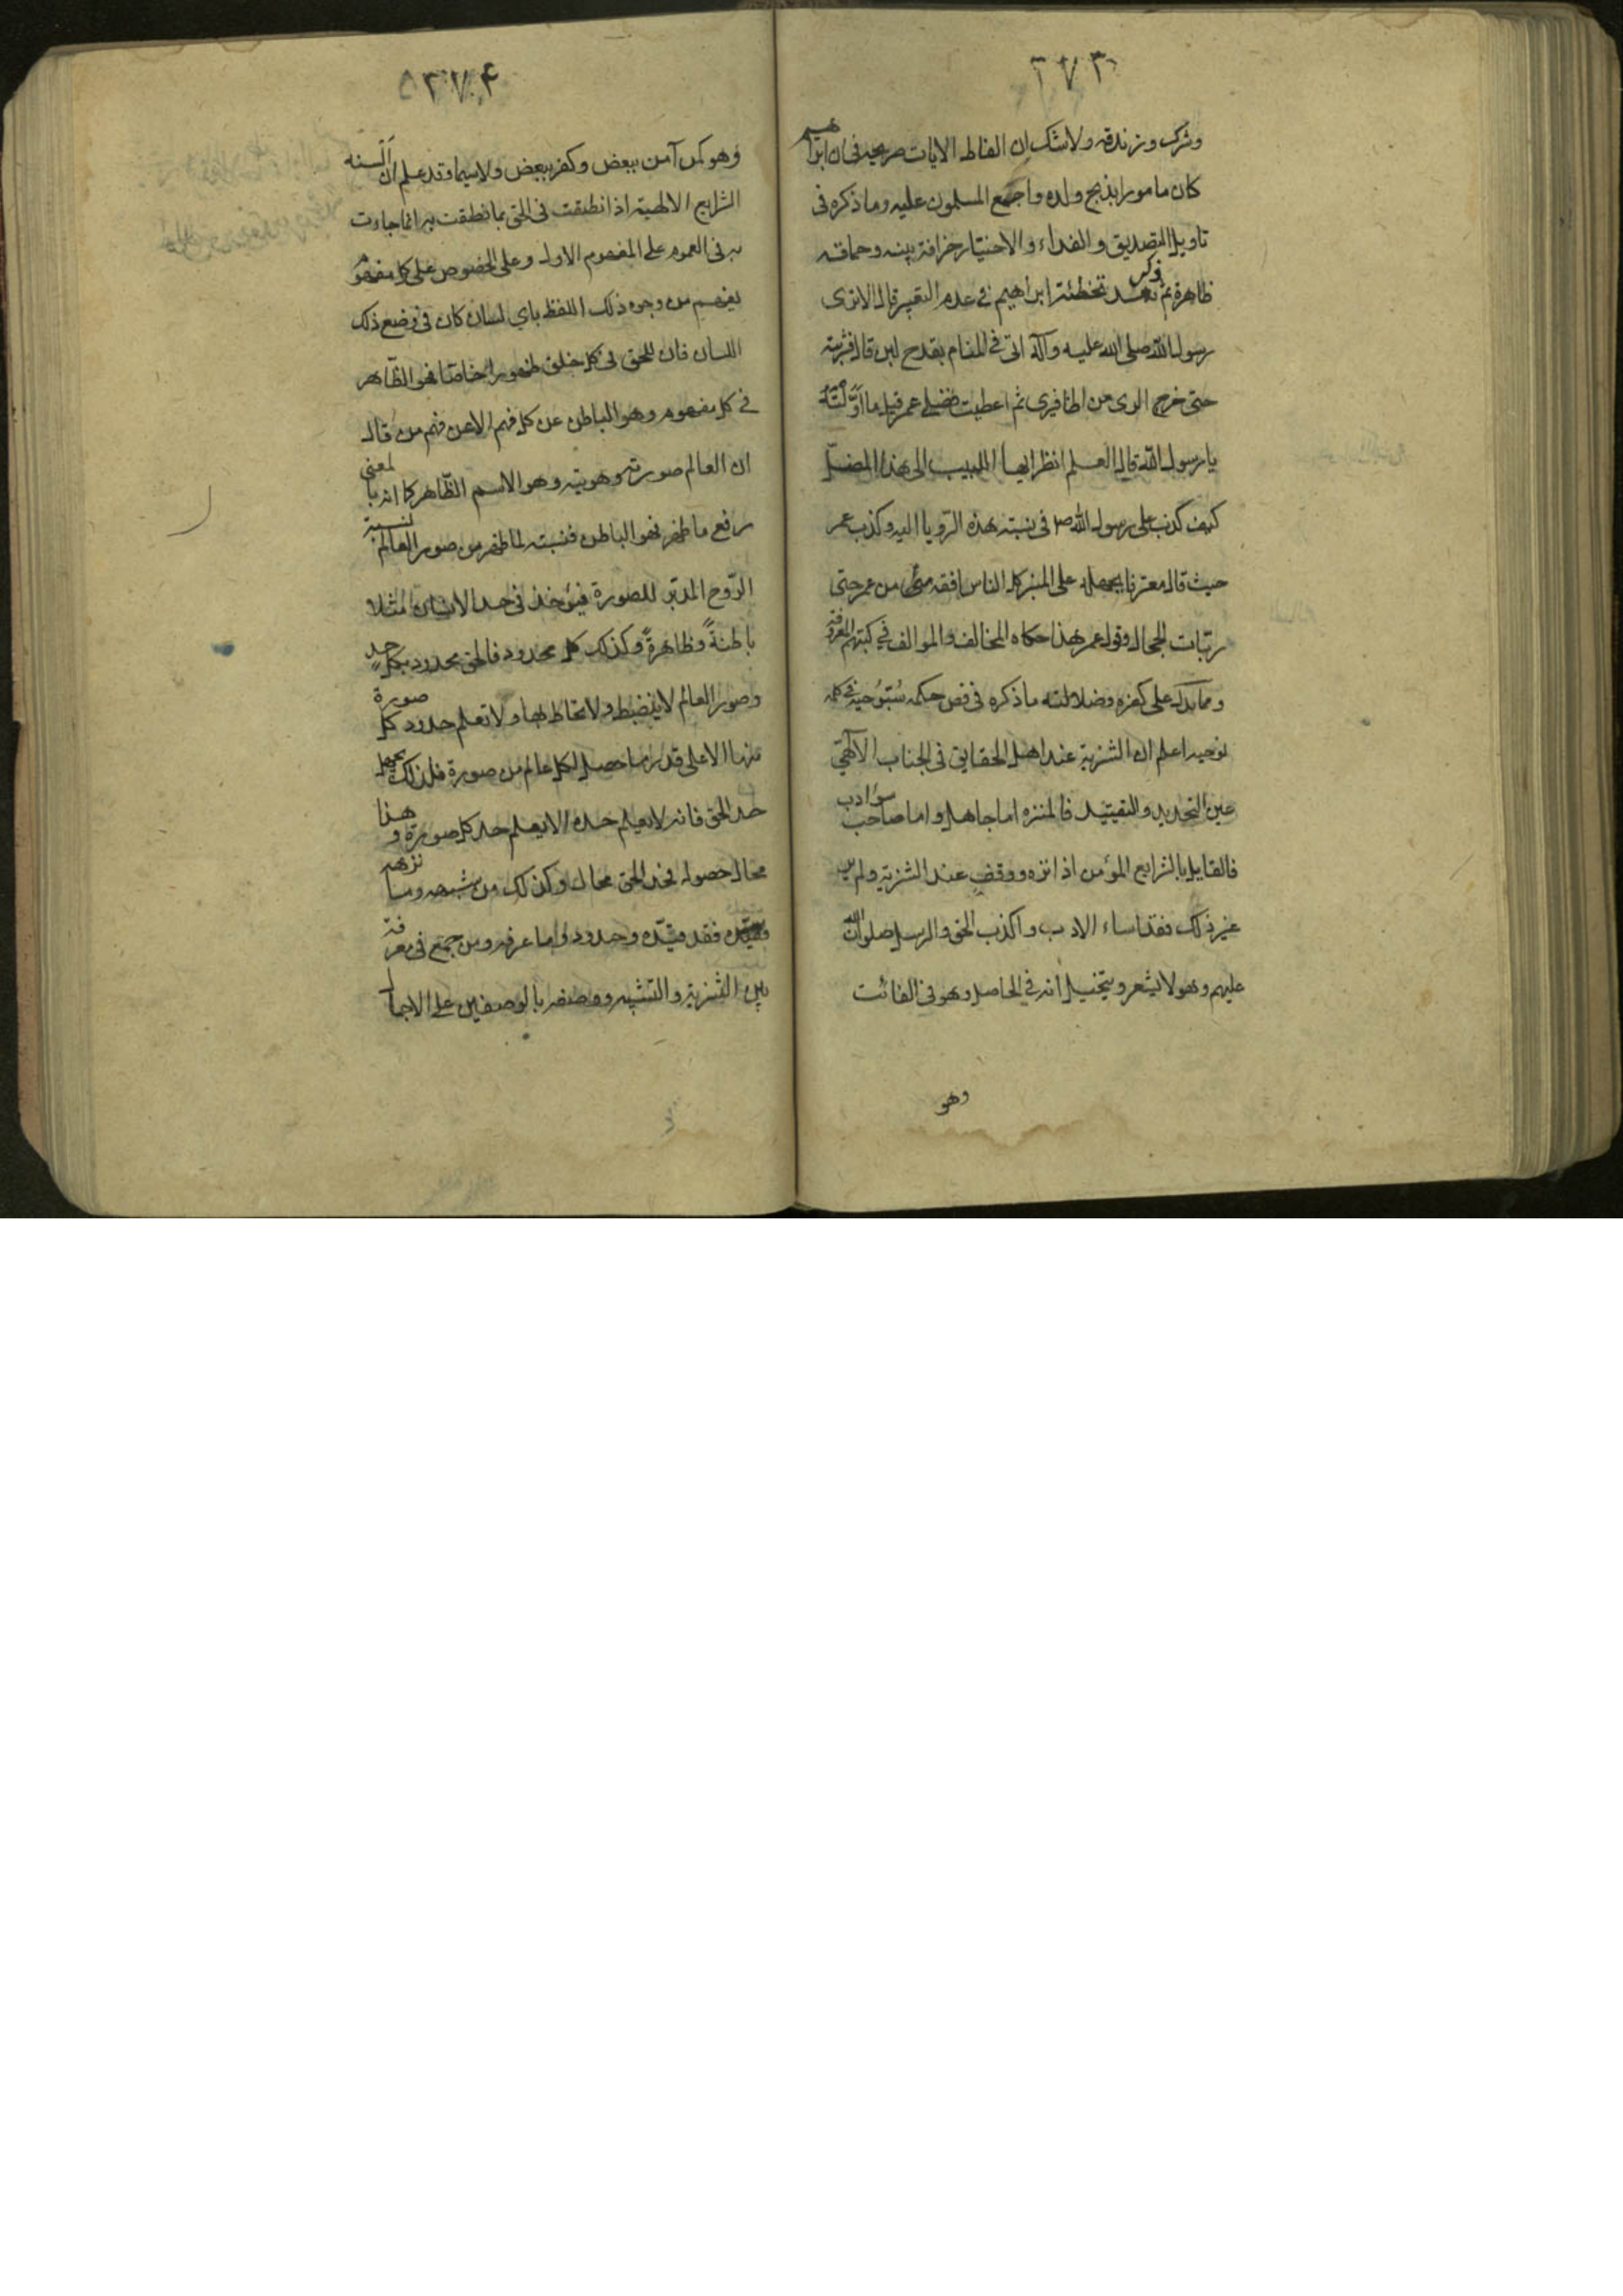 ٢٧٣
وشرك وزندقه ولا شك ان الفاظ الايات صريحه فى ان ابراهيم
كان مامورا بذبح ولده واجمع المسلمون عليه وما ذكره فى
تاويل التصديق والفداء والاختيار خرافة بينه وحماقه
ظاهرة ثم ذكر بعد تخطئة ابراهيم فى عدم التعبير قال الا ترى
رسول الله صلى الله عليه وآله اتى فى المنام بقدح لبن قال فشربته
حتى خرج الرى من اظافيرى ثم اعطيت فضلى عمر قيل ما اوّلتَهُ
يا رسول الله قال العلم انظر ايها اللبيب الى هذا المضلّ
كيف كذب على رسول الله ص فى نسبته هذه الرّويا اليه وكذب عمر
حيث قال معترفا بجهله على المنبر كل الناس افقه منى من عمر حتى
ربّات الحجال وقول عمر هذا حكاه المخالف والموالف فى كتبهم المعروفة
ومما يدل على كفره وضلالته ما ذكره فى فص حكمه سُبّوُحيه فى كلمه
نوحيه اعلم ان التنزيه عند اهل الحقايق فى الجناب الآلهى
عين التحديد والتقييد فالمنزه اما جاهل واما صاحب سوء ادب
فالقايل بالشرايع المؤمن اذا نزه ووقف عند التنزيه ولم ير
غير ذلك فقد اساء الادب واكذب الحق والرسل صلوات الله
عليهم وهو لا يشعر ويتخيل انه فى الحاصل وهو فى الفائت
وهو
٢٧٤
وهو كمن آمن ببعض وكفر ببعض ولا سيما وقد علم ان اَلْسنه
الشرايع الالهية اذا نطقت فى الحق بما نطقت به انما جاءت
به فى العموم على المفهوم الاول وعلى الخصوص على كل مفهوم
يفهم من وجوه ذلك اللفظ باي لسان كان فى وضع ذلك
اللسان فان للحق فى كل خلق ظهورا خاصا فهو الظّاهر
فى كل مفهوم وهو الباطن عن كل فهم الا عن فهم من قال
ان العالم صورته وهويته وهو الاسم الظّاهر كما انه بالمعنى
روح ما ظهر فهو الباطن فنسبته لما ظهر من صور العالم نسبة
الرّوح المدبّر للصورة فيؤخذ فى حد الانسان مثلا
باطنةً وظاهرةً وكذلك كل محدود فالحق محدود بكل حدٍ
وصور العالم لا ينضبط ولا يحاط بها ولا تعلم حدود كل صورة
منها الا على قدر ما حصل لكل عالم من صورة فلذلك يجهل
حد الحق فانه لا يعلم حده الا بعلم حد كل صورة وهذا
محال حصوله فحد الحق محال وكذلك من شبهه وما نزهه
فقد قيّده وحدده وما عرفه ومن جمع فى معرفته
بين التنزيه والتشبيه ووصفه بالوصفين على الاجمال